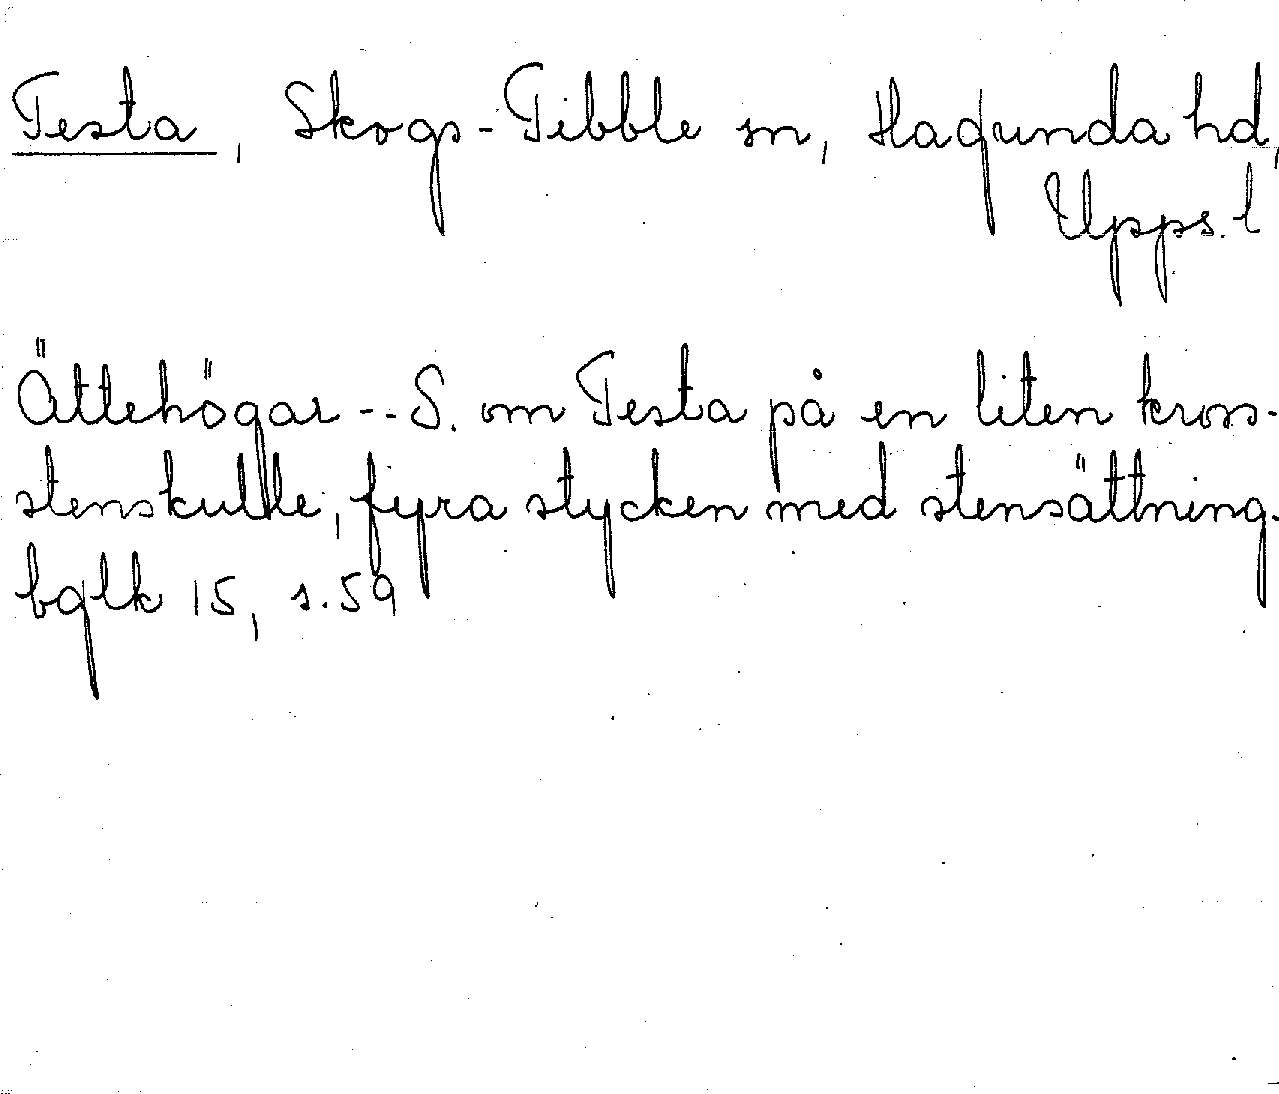 Testa, Skogs-Tibble sn, Hagunda hd,
Upps. l
Ättehögar -- S. om Testa på en liten kross-
stenskulle, fyra stycken med stensättning.
bglk 15, s. 59